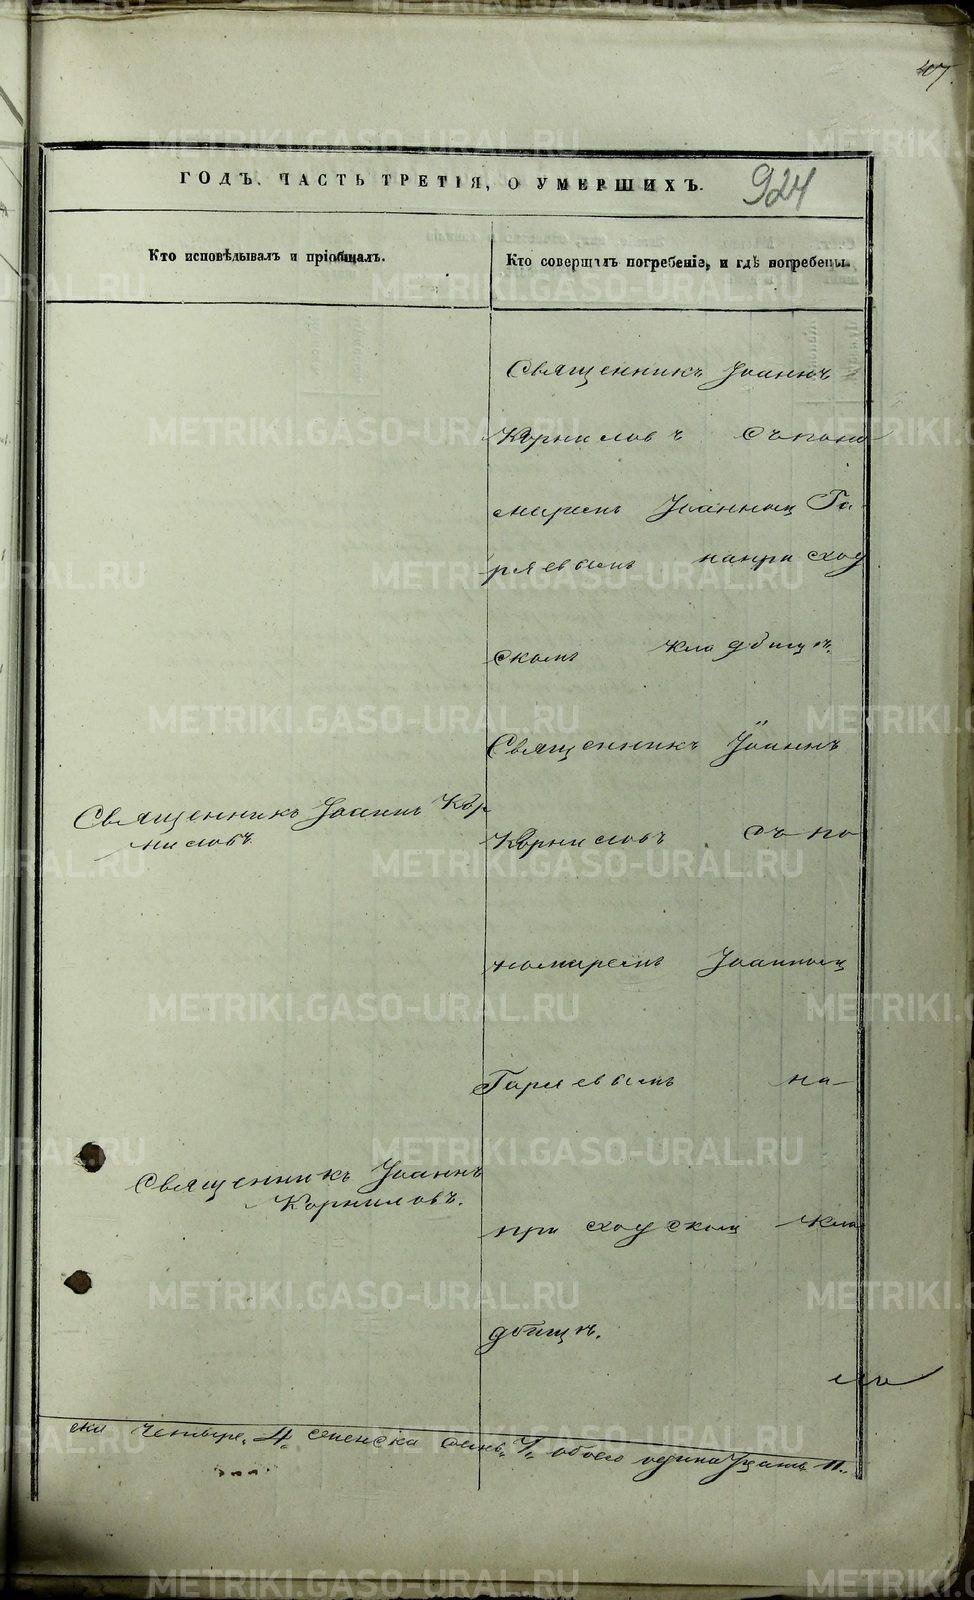 407.
ГОДЪ. ЧАСТЬ ТРЕТІЯ, О УМЕРШИХЪ.
924
Кто исповѣдывалъ и пріобщалъ.
Кто совершалъ погребеніе, и гдѣ погребены.
Священникъ Іоаннъ
Корниловъ съ поно
маремъ Іоанномъ Га-
ряевымъ на приход
скомъ кладбищѣ.
Священникъ Іоаннъ Кор
ниловъ.
Священникъ Іоаннъ
Корниловъ съ по
номаремъ Іоанномъ
Гаряевымъ на
приходскомъ кла
дбищѣ.
Священникъ Іоаннъ
Корниловъ.
ска четыре „4„ женска семь „7„ обоего одинадцать 11„
METRIKI.GASO-URAL.RU